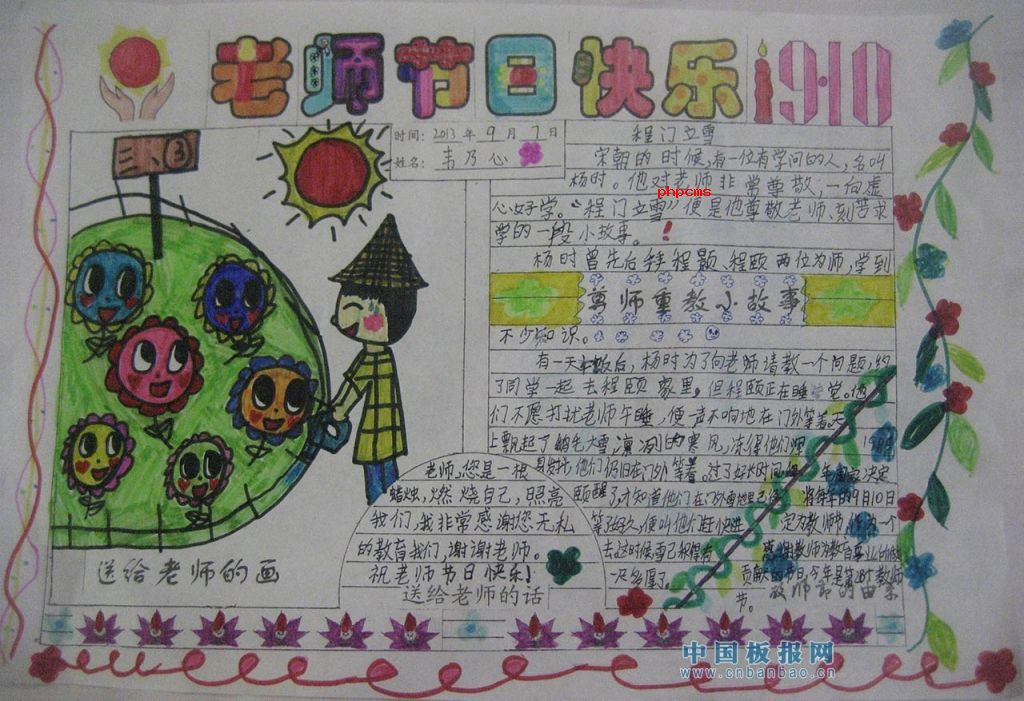 老师节日快乐 910
三、③
时间：2013年9月7日
姓名：韦乃心
程门立雪
宋朝的时候，有一位有学问的人，名叫
杨时。他对老师非常尊敬，一向虚
phpcms
心好学。“程门立雪”便是他尊敬老师、刻苦求
学的一段小故事。
杨时曾先后拜程颢、程颐两位为师，学到
尊师重教小故事
不少知识。
有一天午饭后，杨时为了向老师请教一个问题，约
了同学一起去程颐家里，但程颐正在睡觉。他
们不愿打扰老师午睡，便一声不响地在门外等着。天
上飘起了鹅毛大雪，凛冽的寒风，冻得他们
他们仍旧在门外等着。过了好长时间
颐醒了，才知道他们在门外
等好久，便叫他们赶快进
去，这时候雪已积得有
一尺多厚了。
年国家决定
将每年的9月10日
定为教师，作为一个
感谢教师为教育事业
贡献的节日。今年是第28个教师
节。
教师节的由来
老师，您是一根
蜡烛，燃烧自己，照亮
我们，我非常感谢您无私
的教育我们，谢谢老师。
祝老师节日快乐！
送给老师的话
送给老师的画
中国板报网
www.cnbanbao.cn